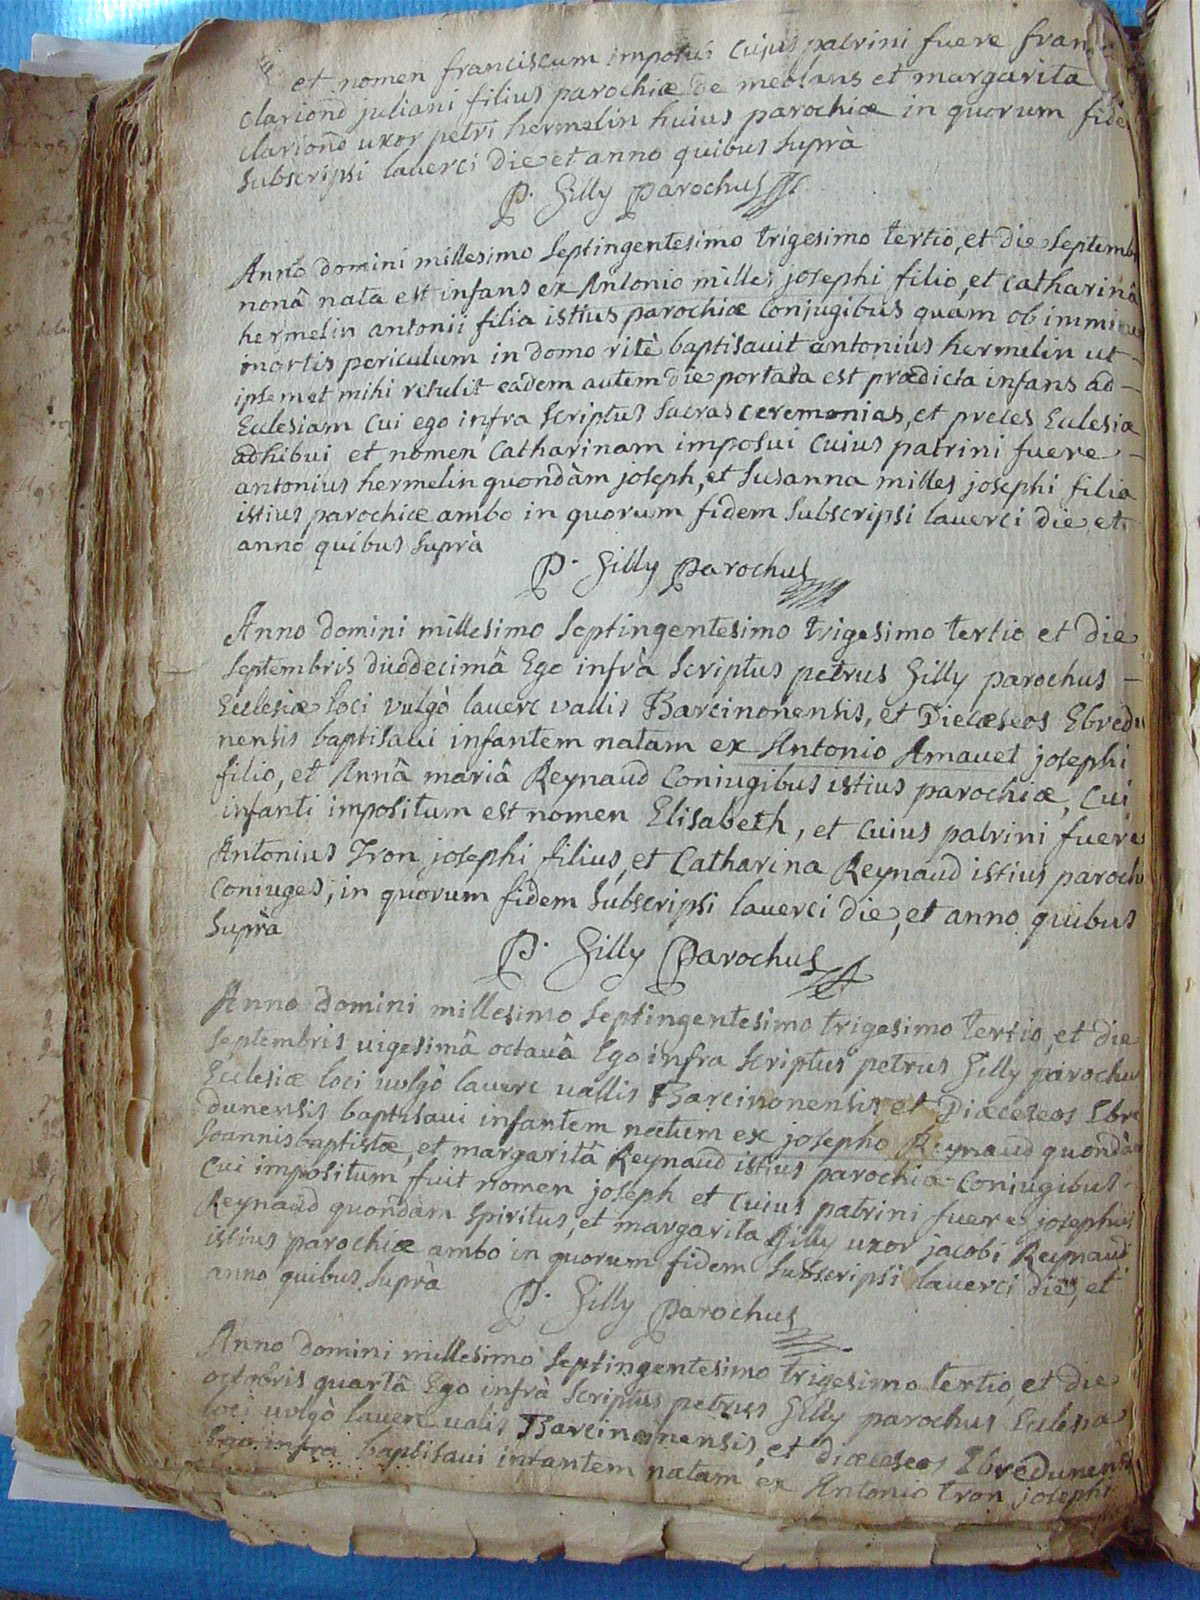 et nomen franciscum imposui Cujus patrini fuere
clariond juliani filius parochiæ de meolans et margarita
clariond uxor petri hermelin huius parochiæ in quorum fide
Subscripsi lauerci die et anno quibus Suprà
P. Gilly Parochus
Anno domini millesimo Septingentesimo trigesimo tertio, et die Septemb
nonâ nata est infans ex Antonio milles josephi filio, et catharinâ
hermelin antonii filia istius parochiæ Conjugibus quam ob immi
mortis periculum in domo ritè baptisauit antonius hermelin ut -
ipsemet mihi retulit eâdem autem die portata est prædicta infans ad -
Ecclesiam Cui ego infra Scriptus Sacras ceremonias, et preces Ecclesiæ
adhibui et nomen Catharinam imposui Cuius patrini fuere -
antonius hermelin quondàm joseph, et Susanna milles josephi filia
istius parochiæ ambo in quorum fidem Subscripsi lauerci die et
anno quibus Suprà
P. Gilly Parochus
Anno domini millesimo Septingentesimo trigesimo tertio et die
Septembris duodecimâ Ego infrà Scriptus petrus Gilly parochus -
Ecclesiæ loci vulgò lauerc vallis Barcinonensis, et Dieceseos Ebredu
nensis baptisaui infantem natam ex Antonio Arnauet josephi
filio, et Annâ mariâ Reynaud Coniugibus istius parochiæ, Cui
infanti impositum est nomen Elisabeth, et Cuius patrini fuere
Antonius Tron josephi filius, et Catharina Reynaud istius paroch
Coniuges, in quorum fidem Subscripsi lauerci die, et anno quibus
Suprà
P. Gilly Parochus
Anno domini millesimo Septingentesimo trigesimo tertio, et die
Septembris uigesimâ octauâ Ego infra Scriptus petrus Gilly parochu
Ecclesiæ loci uulgò lauerc uallis Barcinonensis et Diæceseos Ebre
dunensis baptisaui infantem natum ex josepho Reynaud quondà
Joannisbaptistæ, et margaritâ Reynaud istius parochiæ Coniugibus -
Cui impositum fuit nomen joseph et Cuius patrini fuere josephus
Reynaud quondàm Spiritus, et margarita Gilly uxor jacobi Reynaud
istius parochiæ ambo in quorum fidem Subscripsi lauerci die, et
anno quibus Suprà
P. Gilly Parochus
Anno domini millesimo Septingentesimo trigesimo tertio, et die
octobris quartâ Ego infrà Scriptus petrus Gilly parochus Ecclesiæ
loci uulgò lauerc ualis Barcinonensis, et diæceseos Ebredunensis
Ego infra baptisaui infantem natam ex Antonio tron josephi